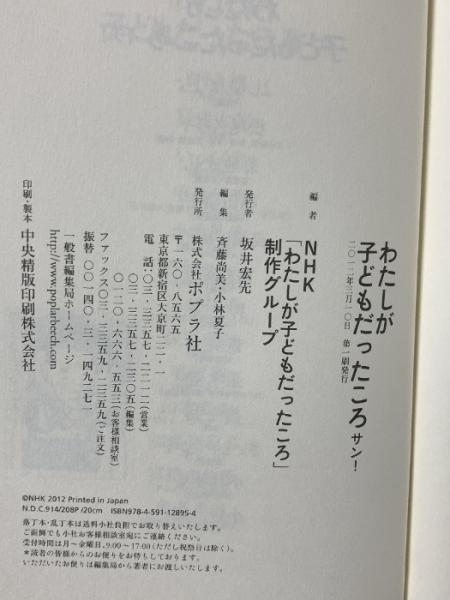 わたしが
子どもだったころ サン！
二〇一二年三月一〇日　第一刷発行
編者
NHK
「わたしが子どもだったころ」
制作グループ
発行者　坂井宏先
編集　斉藤尚美・小林夏子
発行所　株式会社ポプラ社
〒一六〇‐八五六五
東京都新宿区大京町二二‐一
電話：〇三‐三三五七‐二二一二（営業）
〇三‐三三五七‐二三〇五（編集）
〇一二〇‐六六六‐五五三（お客様相談室）
ファックス〇三‐三三五九‐二三五九（ご注文）
振替　〇〇一四〇‐三‐一四九二七一
一般書編集局ホームページ
http://www.poplarbeech.com
印刷・製本　中央精版印刷株式会社
©NHK 2012 Printed in Japan
N.D.C.914/208P/20cm　ISBN978-4-591-12895-4
落丁本・乱丁本は送料小社負担でお取り替えいたします。
ご面倒でも小社お客様相談室宛にご連絡ください。
受付時間は月～金曜日、9:00～17:00（ただし祝祭日は除く）。
＊読者の皆様からのお便りをお待ちしております。
いただいたお便りは編集局から著者にお渡しいたします。